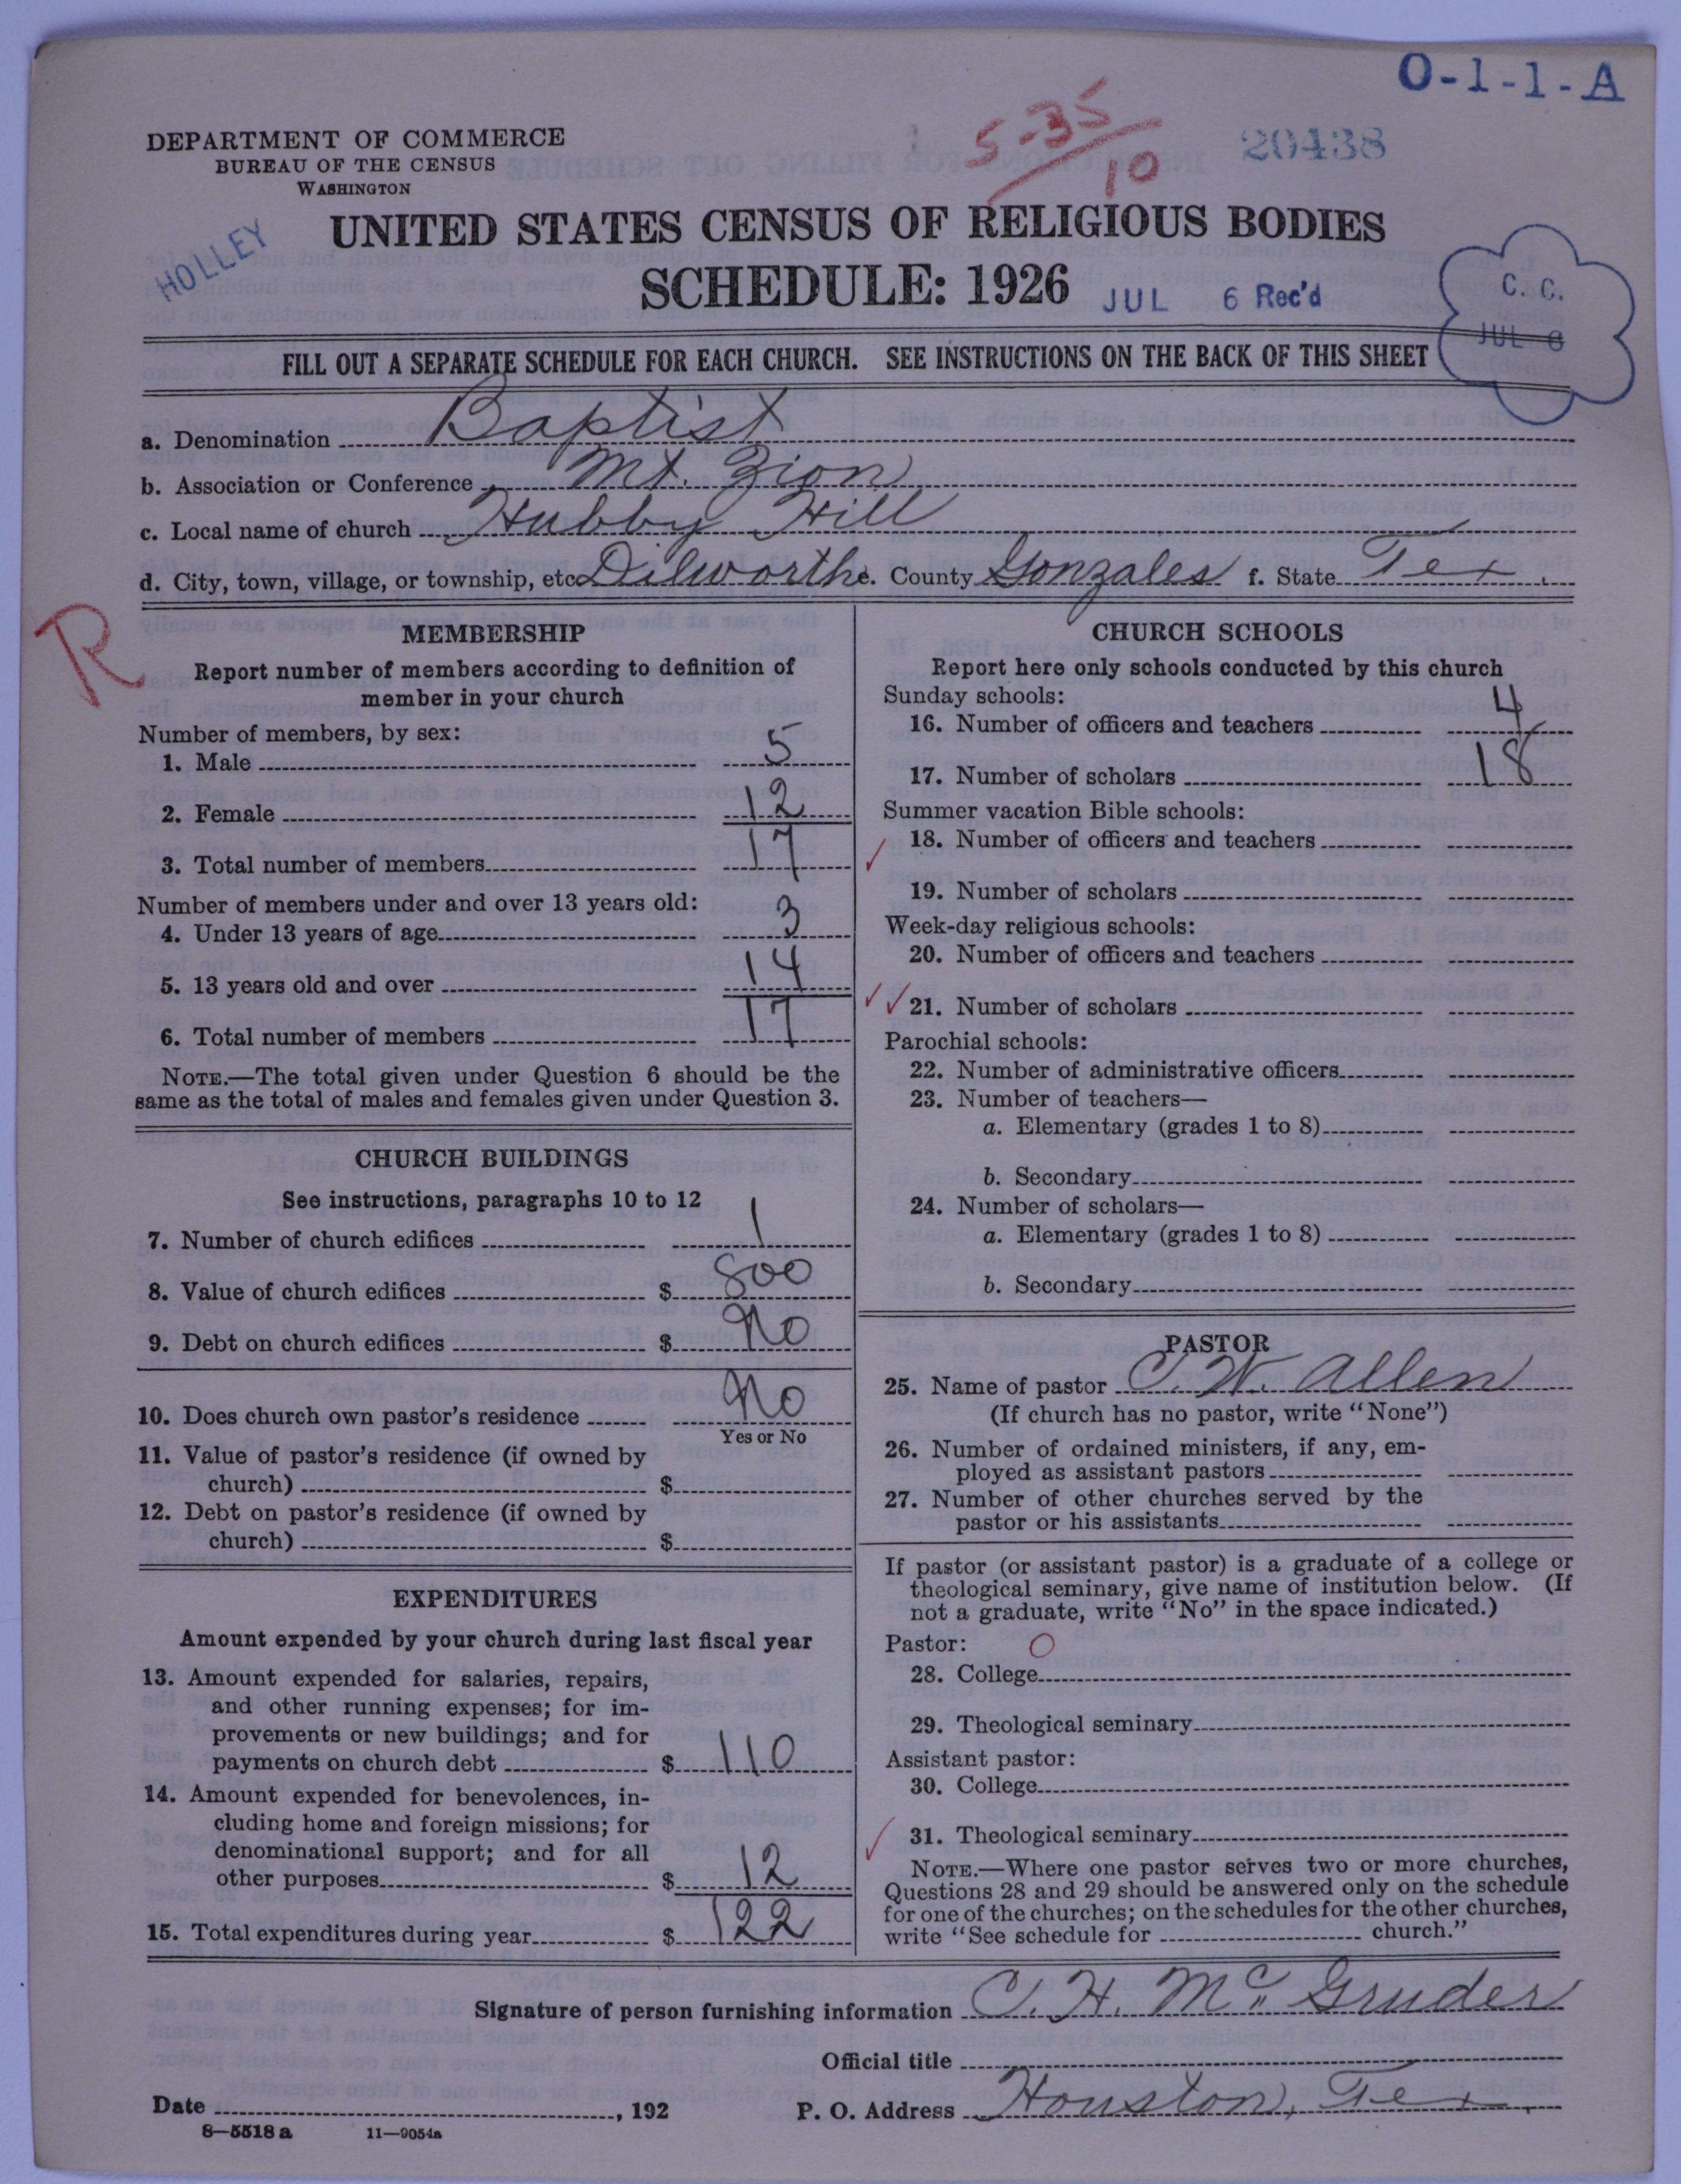 O-1-1-A
5-35
10
20438
DEPARTMENT OF COMMERCE
BUREAU OF THE CENSUS
WASHINGTON
HOLLEY
UNITED STATES CENSUS OF RELIGIOUS BODIES
SCHEDULE: 1926
JUL 6 Rec'd
C. C.
JUL 6
FILL OUT A SEPARATE SCHEDULE FOR EACH CHURCH. SEE INSTRUCTIONS ON THE BACK OF THIS SHEET
a. Denomination Baptist
b. Association or Conference Mt. Zion
c. Local name of church Hubby Hill
d. City, town, village, or township, etc. Dilworth e. County Gonzales f. State Tex.
R
MEMBERSHIP
Report number of members according to definition of
member in your church
Number of members, by sex:
1. Male 5
2. Female 12
3. Total number of members 17
Number of members under and over 13 years old:
4. Under 13 years of age 3
5. 13 years old and over 14
6. Total number of members 17
NOTE.—The total given under Question 6 should be the
same as the total of males and females given under Question 3.
CHURCH BUILDINGS
See instructions, paragraphs 10 to 12
7. Number of church edifices 1
8. Value of church edifices $ 800
9. Debt on church edifices $ No
10. Does church own pastor's residence No
Yes or No
11. Value of pastor's residence (if owned by
church) $
12. Debt on pastor's residence (if owned by
church) $
EXPENDITURES
Amount expended by your church during last fiscal year
13. Amount expended for salaries, repairs,
and other running expenses; for im-
provements or new buildings; and for
payments on church debt $ 110
14. Amount expended for benevolences, in-
cluding home and foreign missions; for
denominational support; and for all
other purposes $ 12
15. Total expenditures during year $ 122
CHURCH SCHOOLS
Report here only schools conducted by this church
Sunday schools:
16. Number of officers and teachers 4
17. Number of scholars 18
Summer vacation Bible schools:
18. Number of officers and teachers
19. Number of scholars
Week-day religious schools:
20. Number of officers and teachers
21. Number of scholars
Parochial schools:
22. Number of administrative officers
23. Number of teachers—
a. Elementary (grades 1 to 8)
b. Secondary
24. Number of scholars—
a. Elementary (grades 1 to 8)
b. Secondary
PASTOR
25. Name of pastor C. W. Allen
(If church has no pastor, write "None")
26. Number of ordained ministers, if any, em-
ployed as assistant pastors
27. Number of other churches served by the
pastor or his assistants
If pastor (or assistant pastor) is a graduate of a college or
theological seminary, give name of institution below. (If
not a graduate, write "No" in the space indicated.)
Pastor: O
28. College
29. Theological seminary
Assistant pastor:
30. College
31. Theological seminary
NOTE.—Where one pastor serves two or more churches,
Questions 28 and 29 should be answered only on the schedule
for one of the churches; on the schedules for the other churches,
write "See schedule for church."
Signature of person furnishing information C. H. McGruder
Official title
Date , 192 P. O. Address Houston, Tex.
8—5518 a 11—9054a